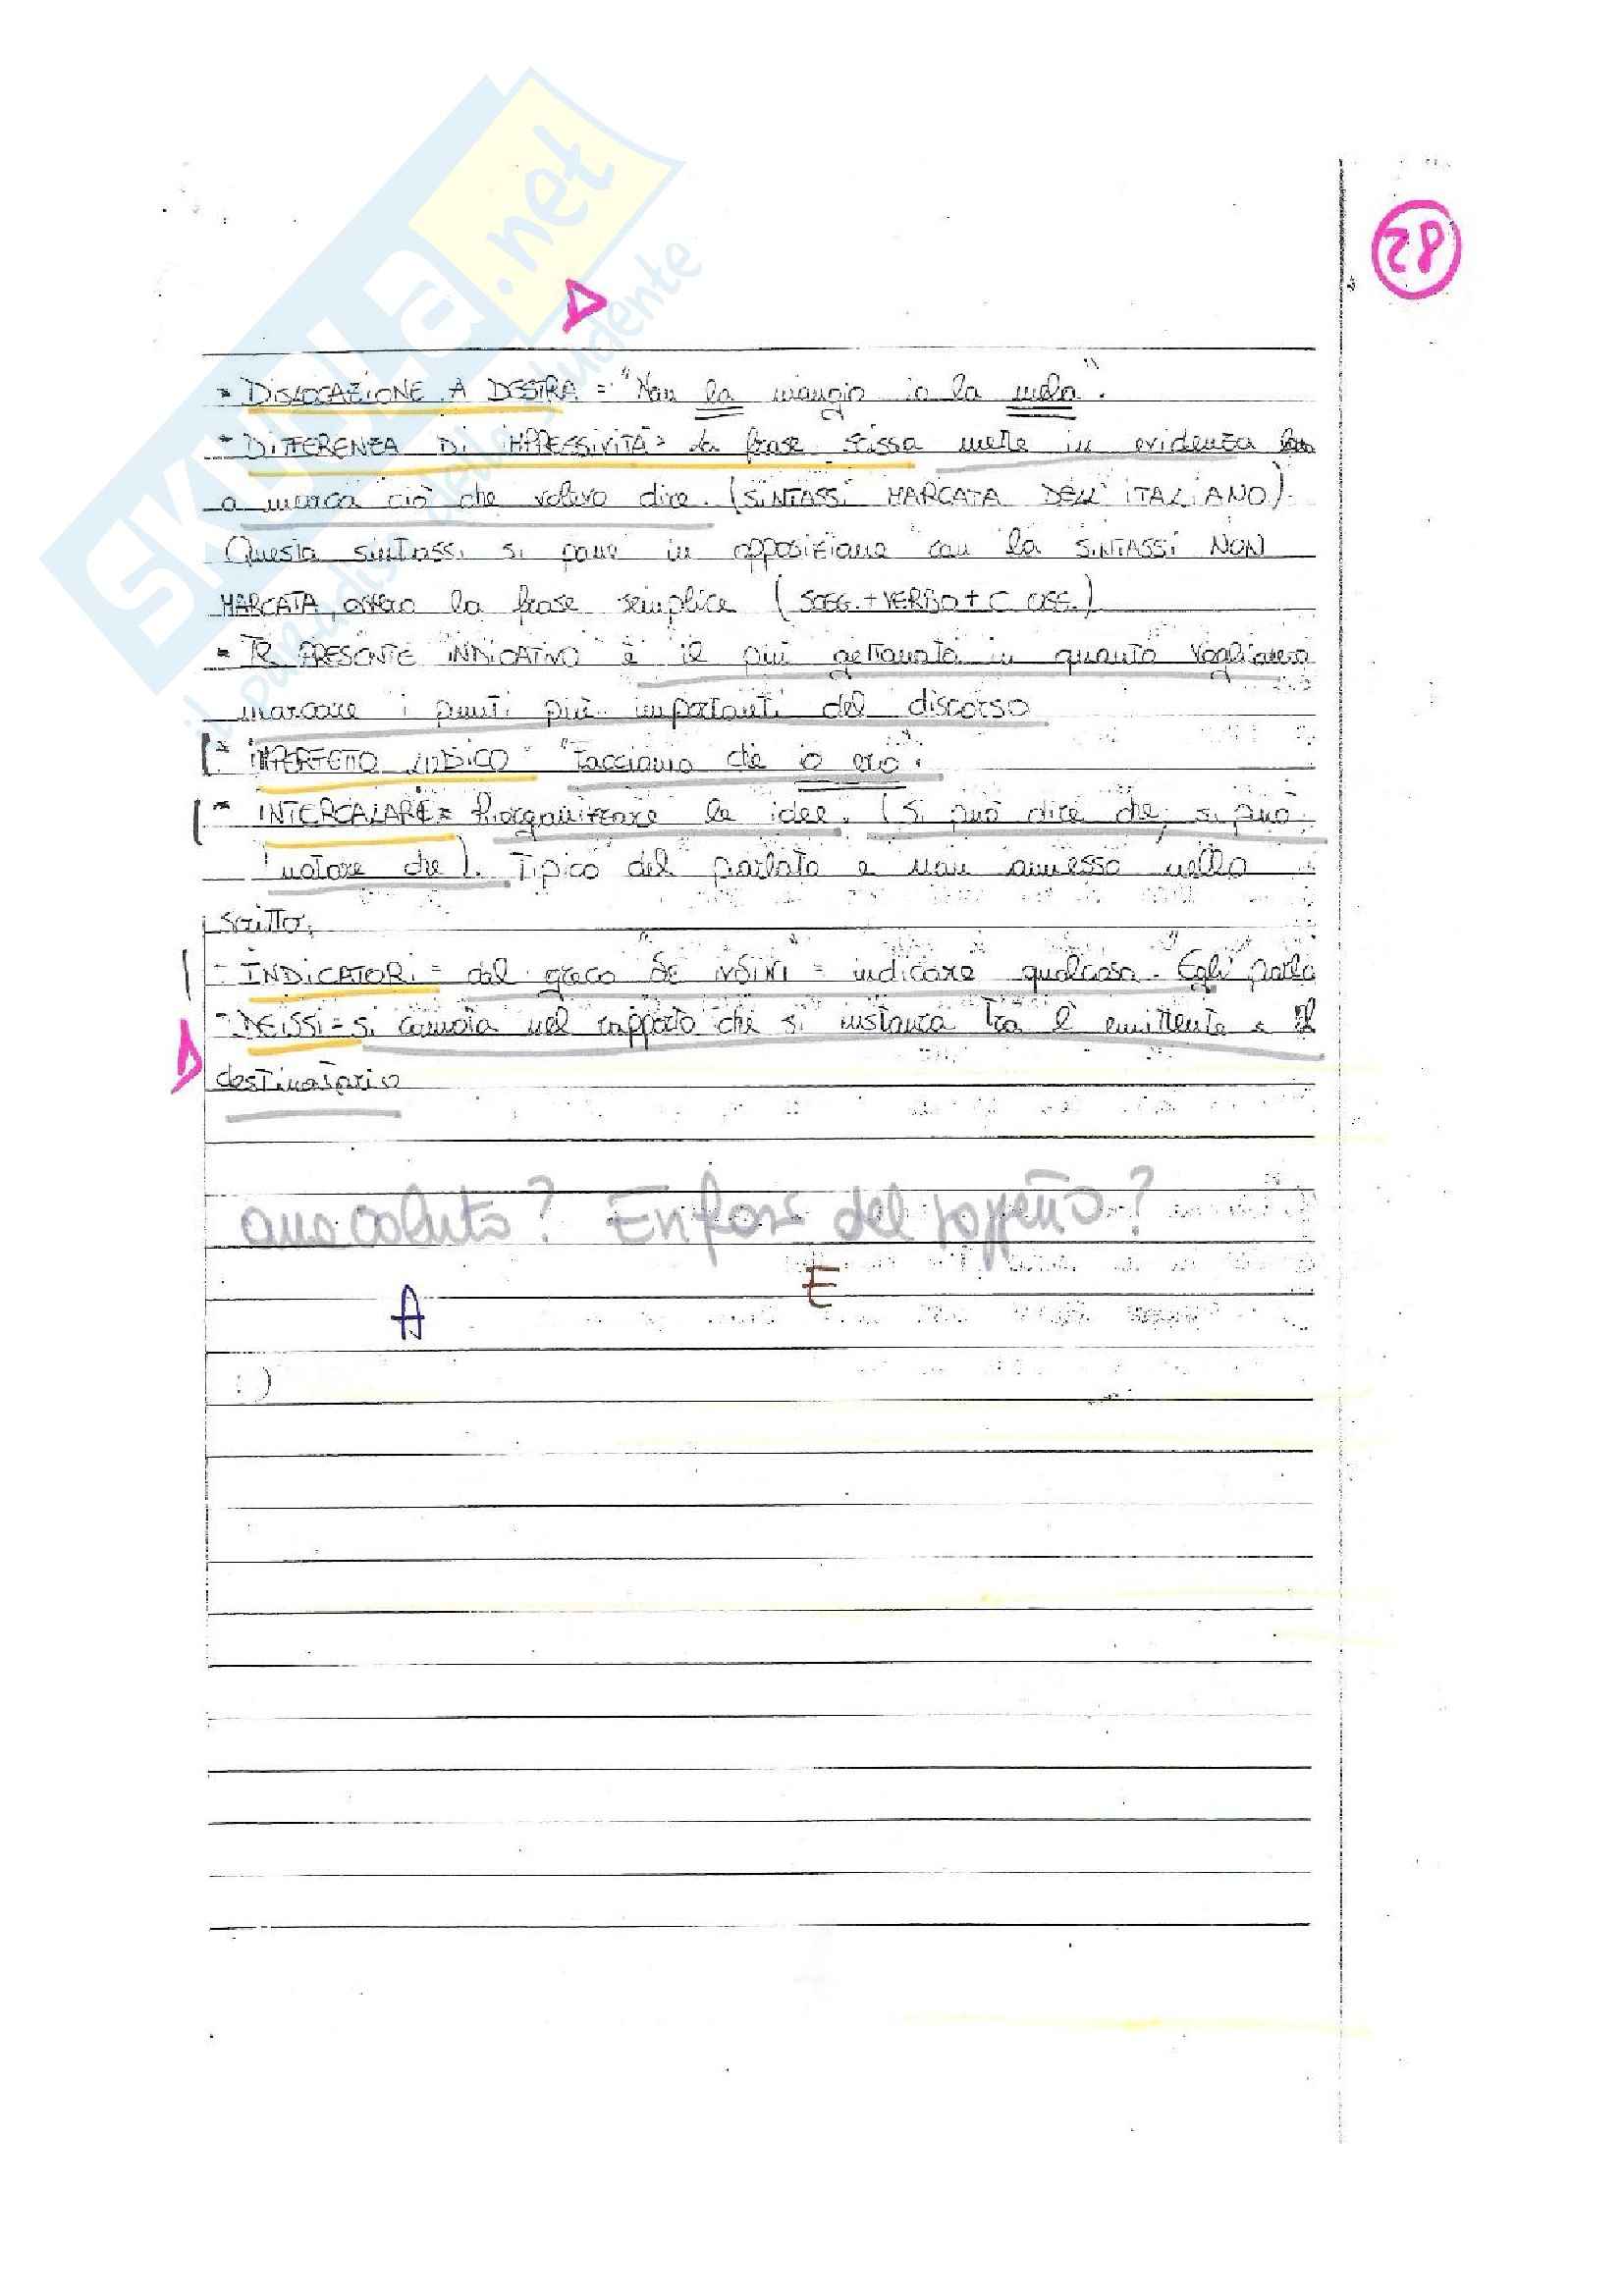 28
SKUOLA.net
il paradiso dello studente
- DISLOCAZIONE A DESTRA = "Non la mangio io la mela".
- DIFFERENZA DI IMPRESSIVITÀ = La frase scissa mette in evidenza
a marca ciò che volevo dire. (SINTASSI MARCATA DELL'ITALIANO).
Questa sintassi si pone in opposizione con la SINTASSI NON
MARCATA, ovvero la frase semplice (SOGG. + VERBO + C. OGG.)
- IL PRESENTE INDICATIVO è il più gettonato in quanto vogliamo
marcare i punti più importanti del discorso
- IMPERFETTO LUDICO = "Facciamo che io ero".
- INTERCALARE = Riorganizzare le idee. (Si può dire che, si può
notare che). Tipico del parlato e non ammesso nello
scritto.
- INDICATORI = dal greco = indicare qualcosa. "Egli" parla
- DEISSI = si cambia nel rapporto che si instaura tra l'emittente e il
destinatario
anacoluto? Enfasi del soggetto?
A E
:)